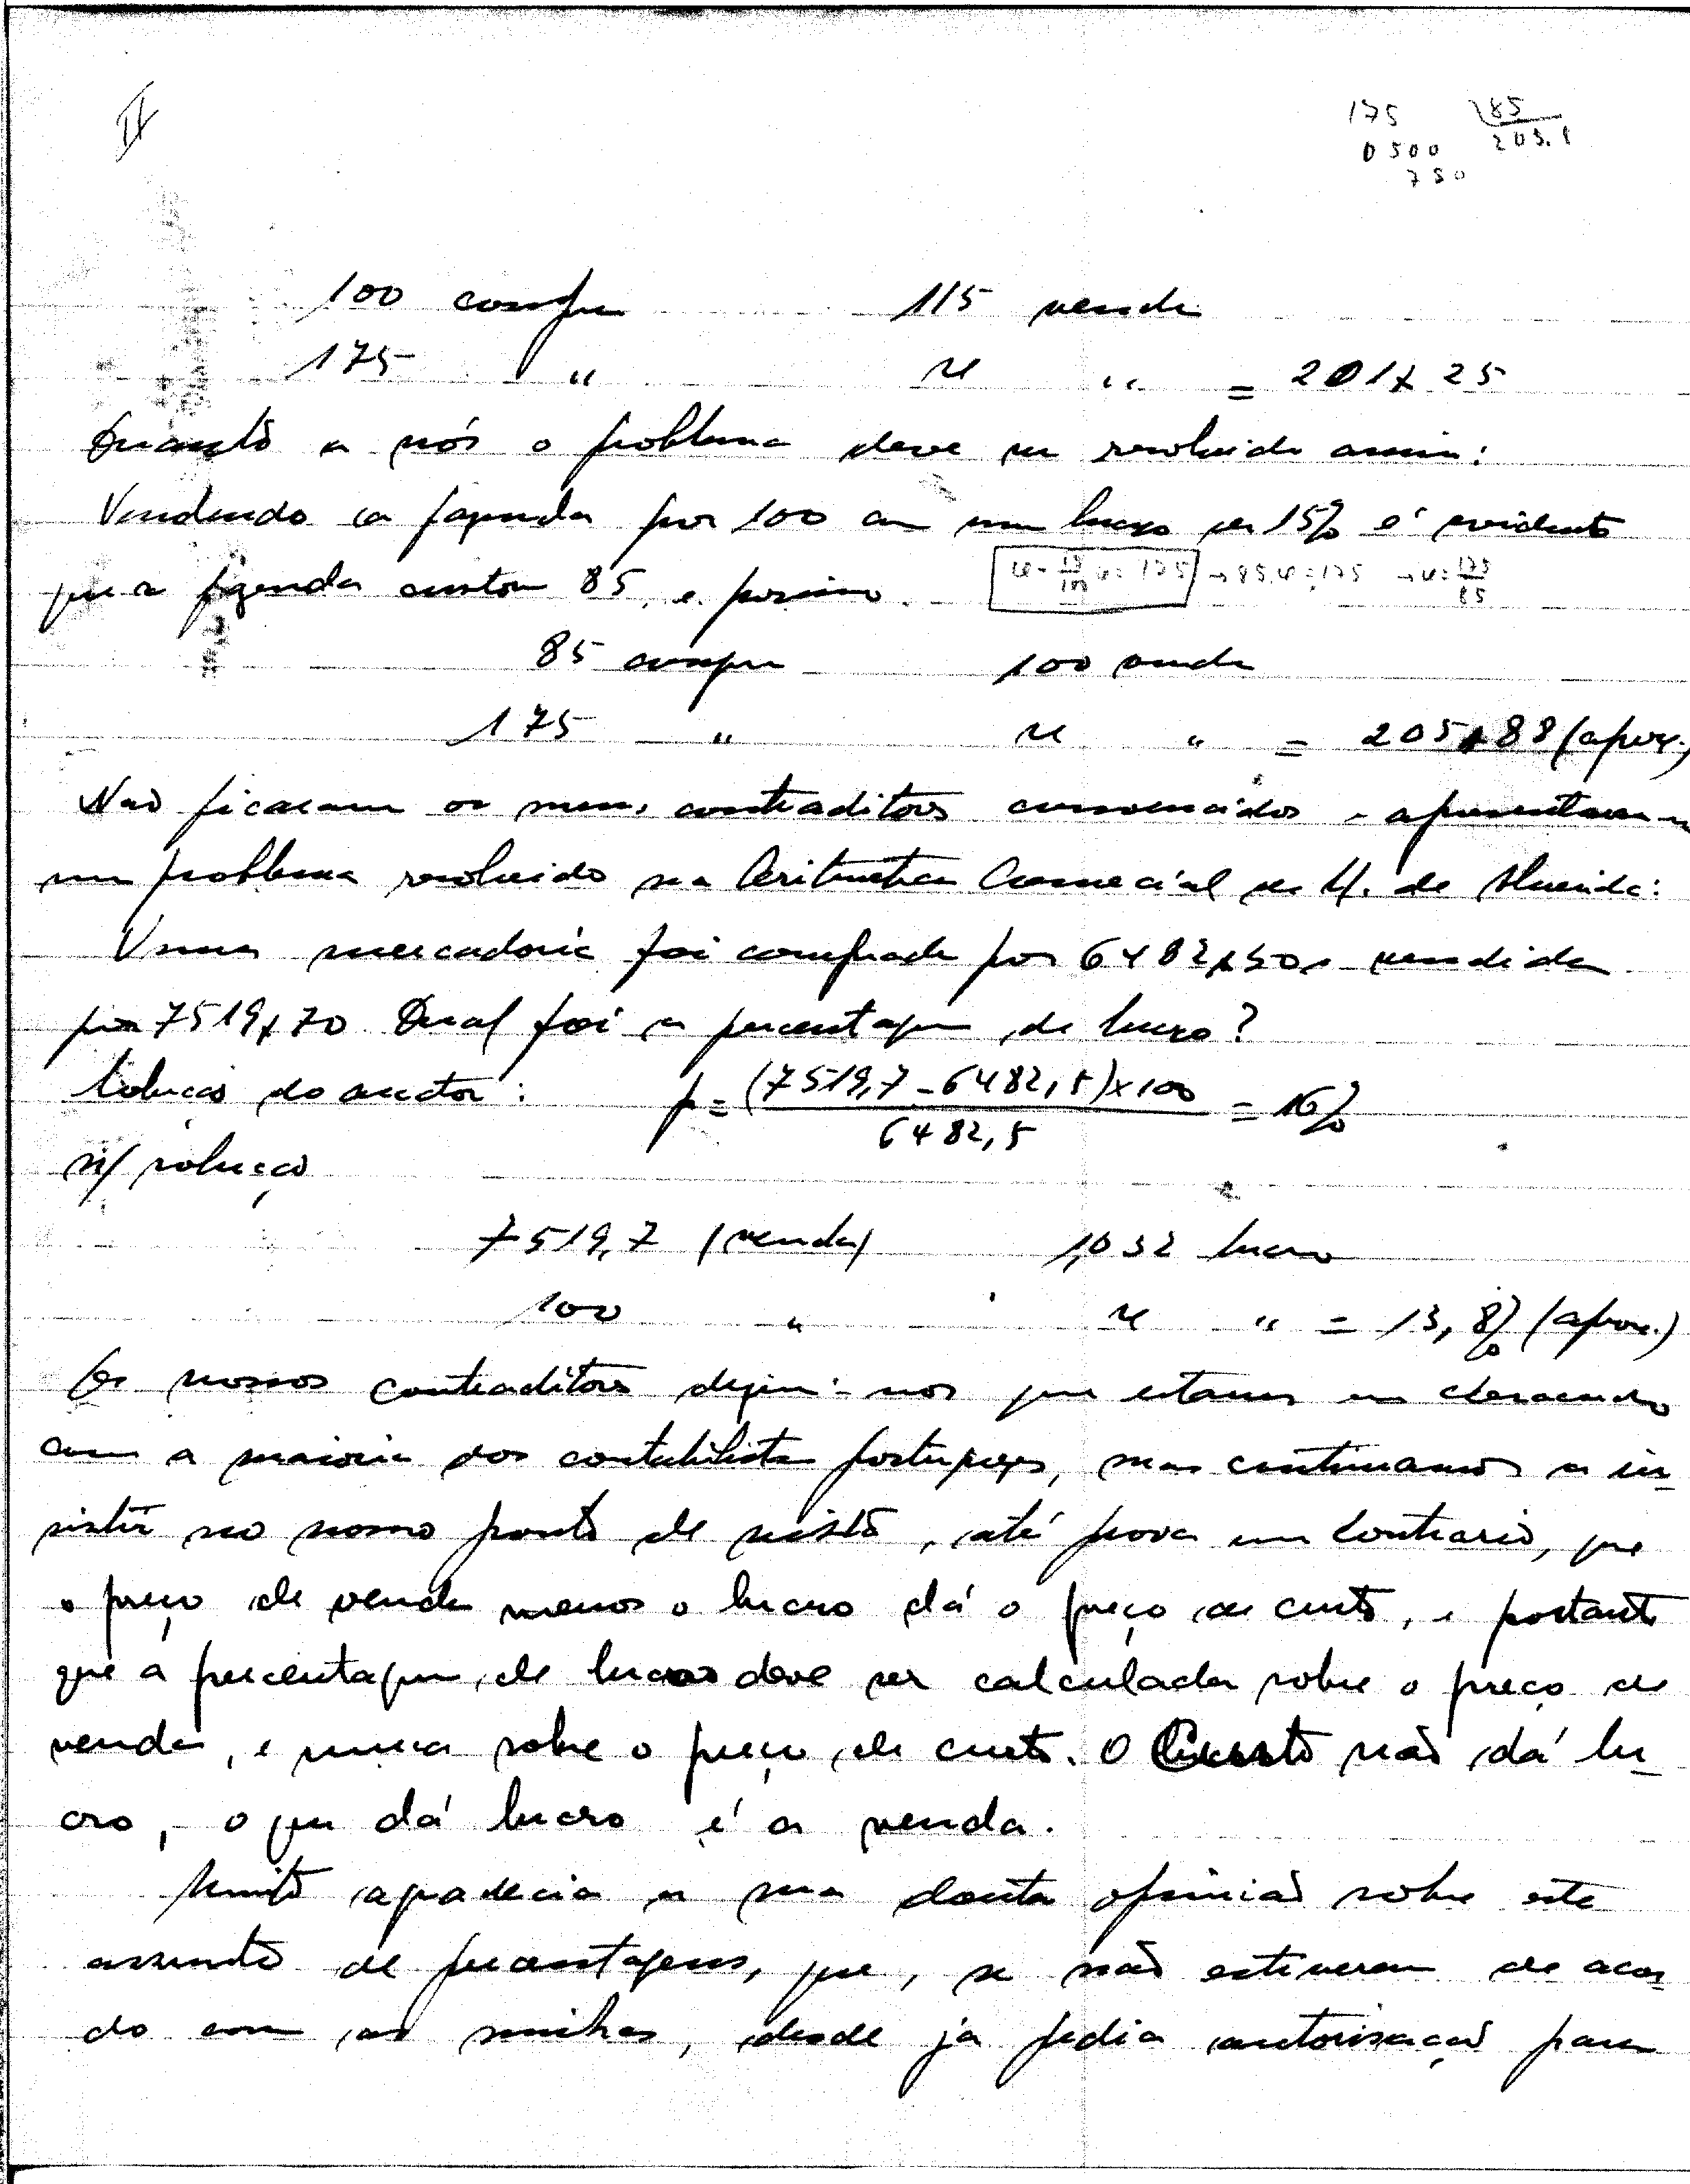 II
175 85
0500 205.8
750
100 compra 115 venda
175 " x " = 201$25
Quanto a nós o problema deve ser resolvido assim:
Vendendo a fazenda por 100 com um lucro de 15% é evidente
que a fazenda custou 85, e por isso
x - 15/100 x = 175 → 85x = 175 → x = 175/85
85 compra 100 venda
175 " x " = 205$88 (aprox.)
Não ficaram os meus contraditores convencidos e apresentaram-
um problema resolvido na Aritmetica Comercial de de Almeida:
Uma mercadoria foi comprada por 6482$50 e vendida
por 7519$70 Qual foi a percentagem de lucro?
Solução do auctor: p = (7519,7 - 6482,5) x 100 / 6482,5 = 16%
n/ solução
7519,7 (venda) 1,032 lucro
100 " x " = 13,8% (aprox.)
Os nossos contraditores dizem-nos que estamos em desacordo
com a maioria dos contabilistas portugueses, mas continuamos a in-
sistir no nosso ponto de vista, até prova em contrario, que
o preço de venda menos o lucro dá o preço de custo, e portanto
que a percentagem de lucro deve ser calculada sobre o preço de
venda, e nunca sobre o preço de custo. O Custo não dá lu-
cro, o que dá lucro é a venda.
Muito agradecia a sua douta opinião sobre este
assunto de percentagens, que, se não estiverem de acor-
do com as minhas, desde já pedia autorisação para